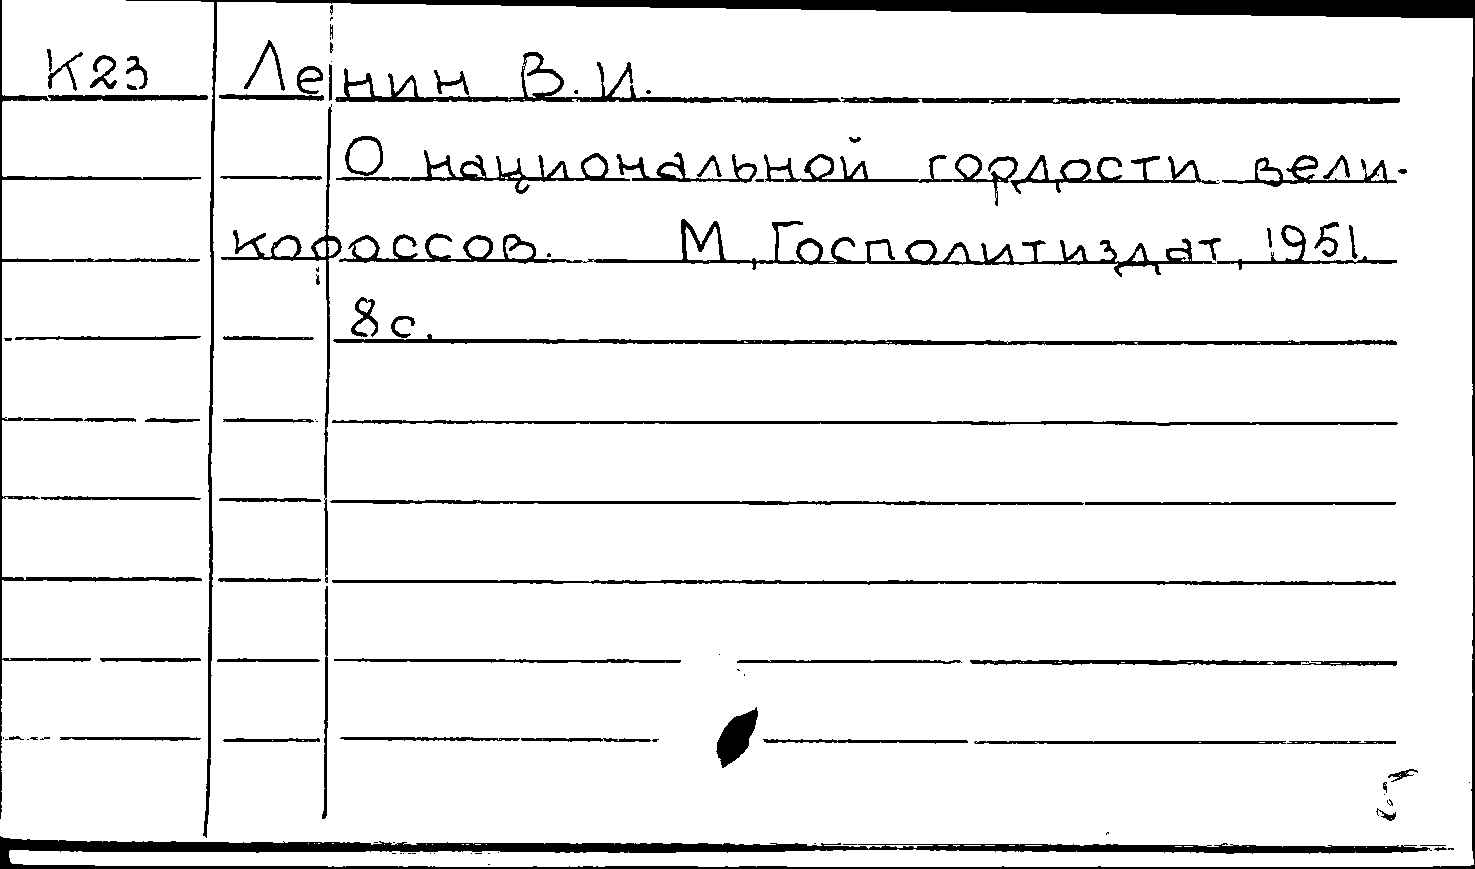 К23 Ленин В.И.
О национальной гордости вели-
короссов. М, Госполитиздат, 1951.
8с.